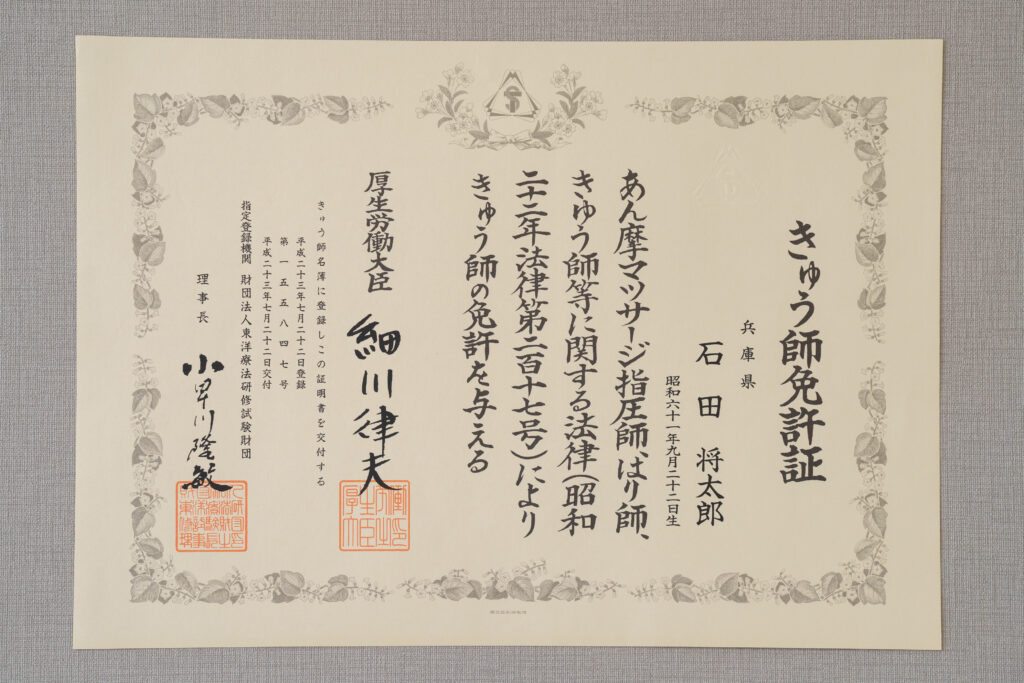 きゅう師免許証
兵庫県
石田将太郎
昭和六十一年九月二十二日生
あん摩マツサージ指圧師、はり師、
きゆう師等に関する法律(昭和
二十二年法律第二百十七号)により
きゅう師の免許を与える
厚生労働大臣 細川律夫
きゅう師名簿に登録しこの証明書を交付する
平成二十三年七月二十二日登録
第一五五八四七号
平成二十三年七月二十二日交付
指定登録機関 財団法人東洋療法研修試験財団
理事長 小早川隆敏